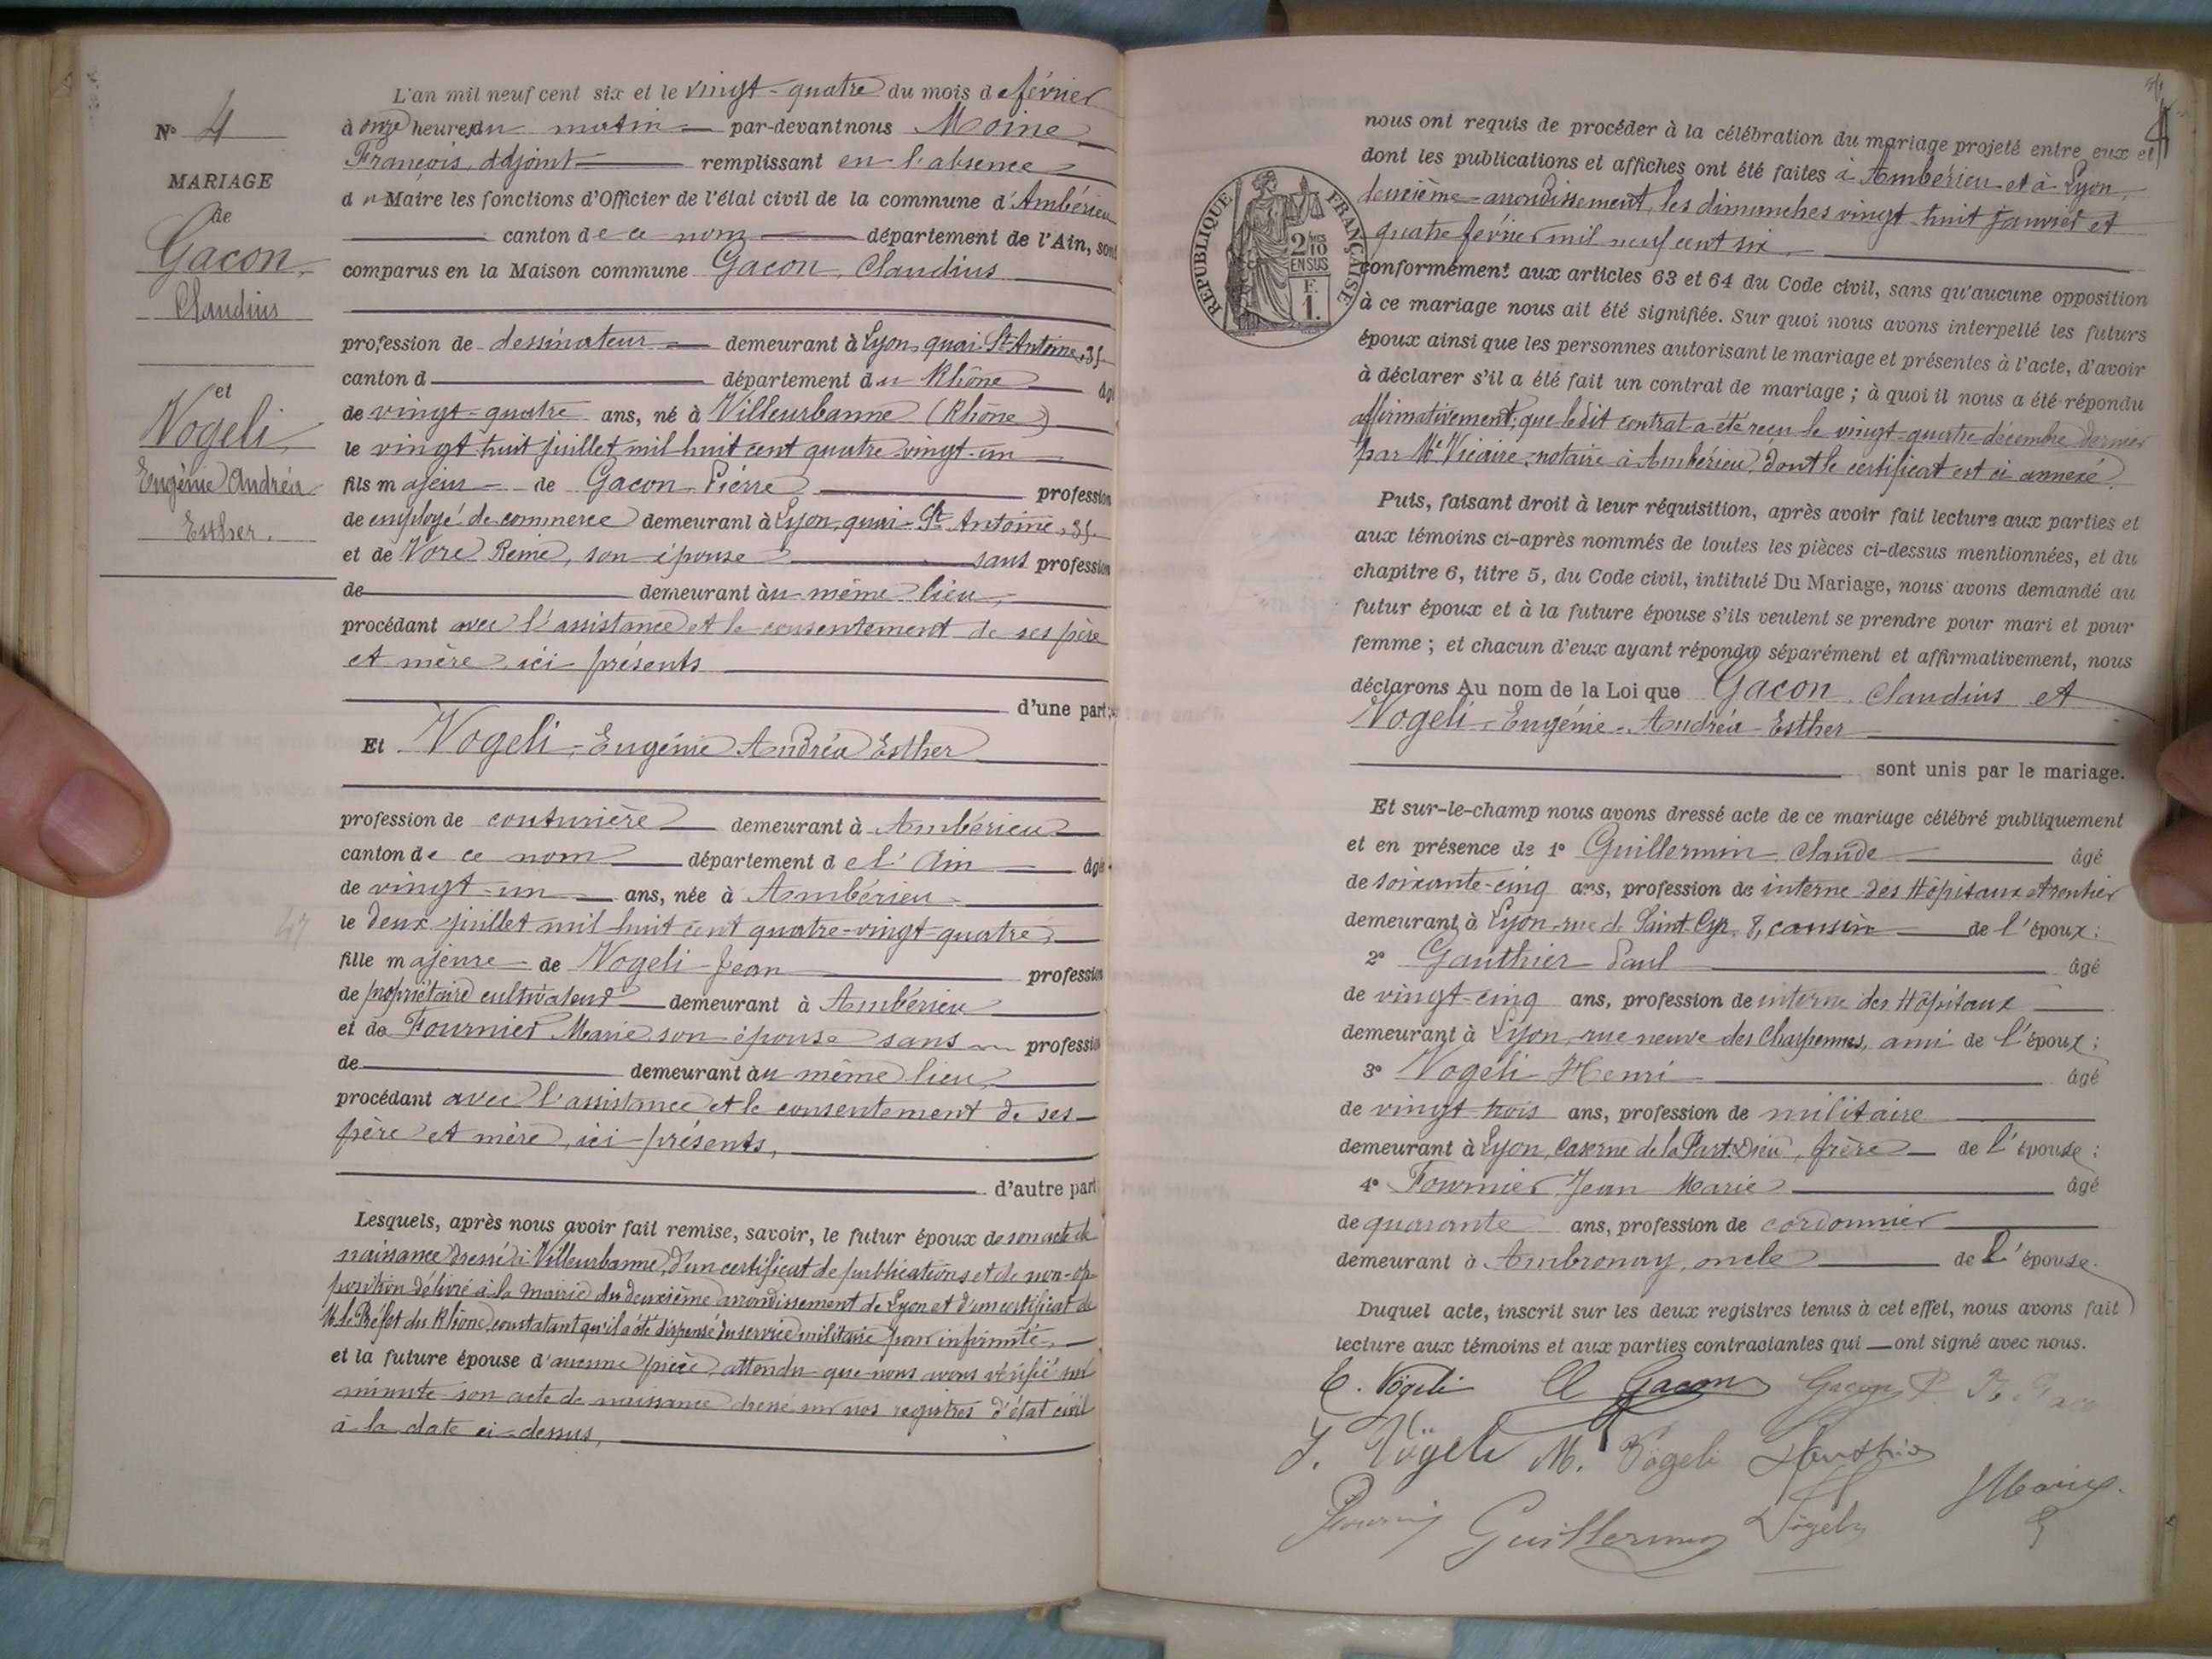 N° 4
MARIAGE
de
Gacon,
Claudius
et
Vogeli
Eugénie Andréa
Esther.
L'an mil neuf cent six et le vingt-quatre du mois de février
à onze heures du matin par-devant nous Moine
François, adjoint remplissant en l'absence
du Maire les fonctions d'Officier de l'état civil de la commune d'Ambérieu
canton de ce nom département de l'Ain, sont
comparus en la Maison commune Gacon, Claudius
profession de dessinateur demeurant à Lyon, quai St Antoine, 35
canton d département du Rhône âgé
de vingt-quatre ans, né à Villeurbanne (Rhône)
le vingt huit juillet mil huit cent quatre vingt-un
fils majeur de Gacon Pierre profession
de employé de commerce demeurant à Lyon, quai St Antoine, 35
et de Vore Reine, son épouse sans profession
de demeurant au même lieu,
procédant avec l'assistance et le consentement de ses père
et mère, ici présents
d'une part;
Et Vogeli, Eugénie Andréa Esther
profession de couturière demeurant à Ambérieu
canton de ce nom département de l'Ain âgée
de vingt-un ans, née à Ambérieu
le deux juillet mil huit cent quatre-vingt-quatre,
fille majeure de Vogeli Jean profession
de propriétaire cultivateur demeurant à Ambérieu
et de Fournier Marie son épouse sans profession
de demeurant au même lieu,
procédant avec l'assistance et le consentement de ses
père et mère, ici présents,
d'autre part
Lesquels, après nous avoir fait remise, savoir, le futur époux de son acte de
naissance dressé à Villeurbanne, d'un certificat de publications et de non-op-
position délivré à la mairie du deuxième arrondissement de Lyon et d'un certificat de
M. le Préfet du Rhône constatant qu'il a été dispensé du service militaire pour infirmité,
et la future épouse d'aucune pièce, attendu que nous avons vérifié sur
minute son acte de naissance dressé sur nos registres d'état civil
à la date ci-dessus,
nous ont requis de procéder à la célébration du mariage projeté entre eux et
dont les publications et affiches ont été faites à Ambérieu et à Lyon,
deuxième arrondissement, les dimanches vingt huit janvier et
quatre février mil neuf cent six
RÉPUBLIQUE FRANÇAISE
2/10
EN SUS
F.
1.
conformément aux articles 63 et 64 du Code civil, sans qu'aucune opposition
à ce mariage nous ait été signifiée. Sur quoi nous avons interpellé les futurs
époux ainsi que les personnes autorisant le mariage et présentes à l'acte, d'avoir
à déclarer s'il a été fait un contrat de mariage; à quoi il nous a été répondu
affirmativement, que ledit contrat a été reçu le vingt-quatre décembre dernier
par Me Vicaire, notaire à Ambérieu, dont le certificat est ci annexé.
Puis, faisant droit à leur réquisition, après avoir fait lecture aux parties et
aux témoins ci-après nommés de toutes les pièces ci-dessus mentionnées, et du
chapitre 6, titre 5, du Code civil, intitulé Du Mariage, nous avons demandé au
futur époux et à la future épouse s'ils veulent se prendre pour mari et pour
femme; et chacun d'eux ayant répondu séparément et affirmativement, nous
déclarons Au nom de la Loi que Gacon Claudius et
Vogeli Eugénie Andréa Esther
sont unis par le mariage.
Et sur-le-champ nous avons dressé acte de ce mariage célébré publiquement
et en présence de 1° Guillermin Claude âgé
de soixante-cinq ans, profession de interne des Hôpitaux et rentier
demeurant à Lyon rue de Saint Cyr, 8, cousin de l'époux;
2° Gauthier Paul âgé
de vingt-cinq ans, profession de interne des Hôpitaux
demeurant à Lyon, rue neuve des Charpennes, ami de l'époux;
3° Vogeli Henri âgé
de vingt trois ans, profession de militaire
demeurant à Lyon, caserne de la Part-Dieu, frère de l'épouse;
4° Fournier Jean Marie âgé
de quarante ans, profession de cordonnier
demeurant à Ambronay, oncle de l'épouse.
Duquel acte, inscrit sur les deux registres tenus à cet effet, nous avons fait
lecture aux témoins et aux parties contractantes qui ont signé avec nous.
E. Vögeli Cl Gacon Gacon P.
J. Vögeli M. Vögeli Gauthier
Guillermin Vögeli Moine